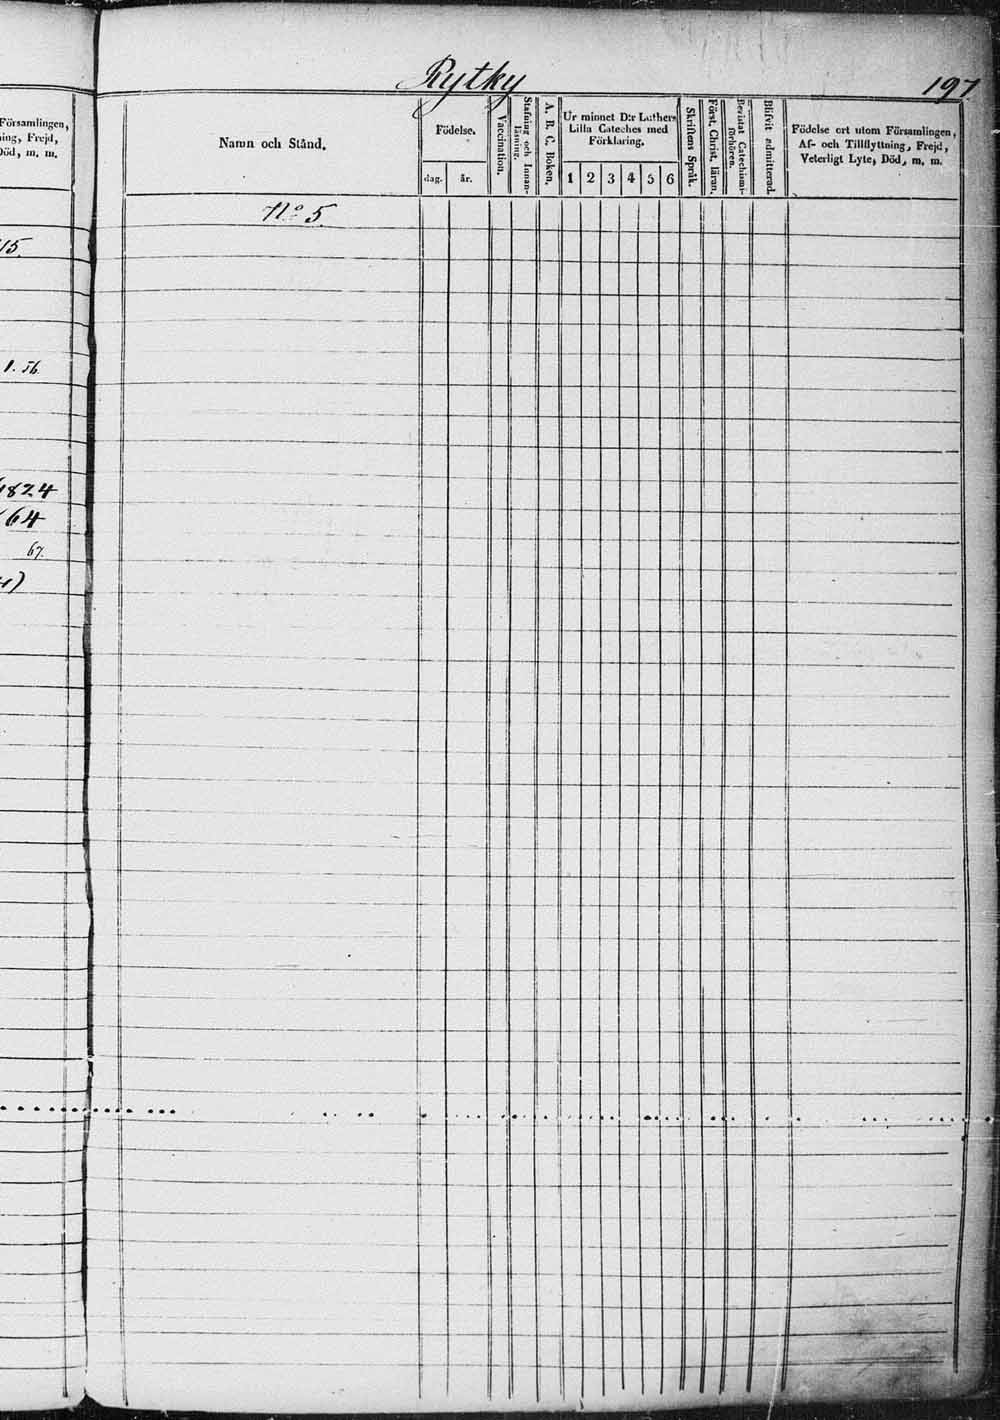 Rytky
197
Församlingen,
ning, Frejd,
Död, m. m.
Namn och Stånd.
Födelse.
dag.
år.
Vaccination.
Stafning och Innan-
läsning.
A. B. C. Boken.
Ur minnet D:r Luthers
Lilla Cateches med
Förklaring.
1 2 3 4 5 6
Skriftens Språk.
Först. Christ. läran.
Bevistat Catechismi-
förhören.
Blifvit admitterad.
Födelse ort utom Församlingen,
Af- och Tillflyttning, Frejd,
Veterligt Lyte, Död, m. m.
No 5.
15.
1. 56.
1824
64
67.